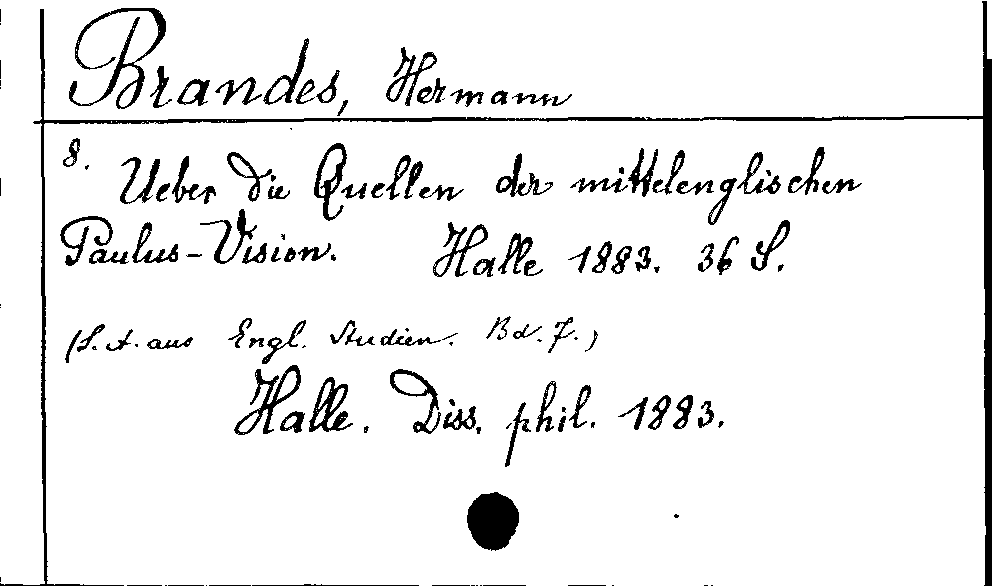 Brandes, Hermann
8.
Ueber die Quellen der mittelenglischen
Paulus-Vision. Halle 1883. 36 S.
(S.A. aus Engl. Studien. Bd. 7.)
Halle. Diss. phil. 1883.